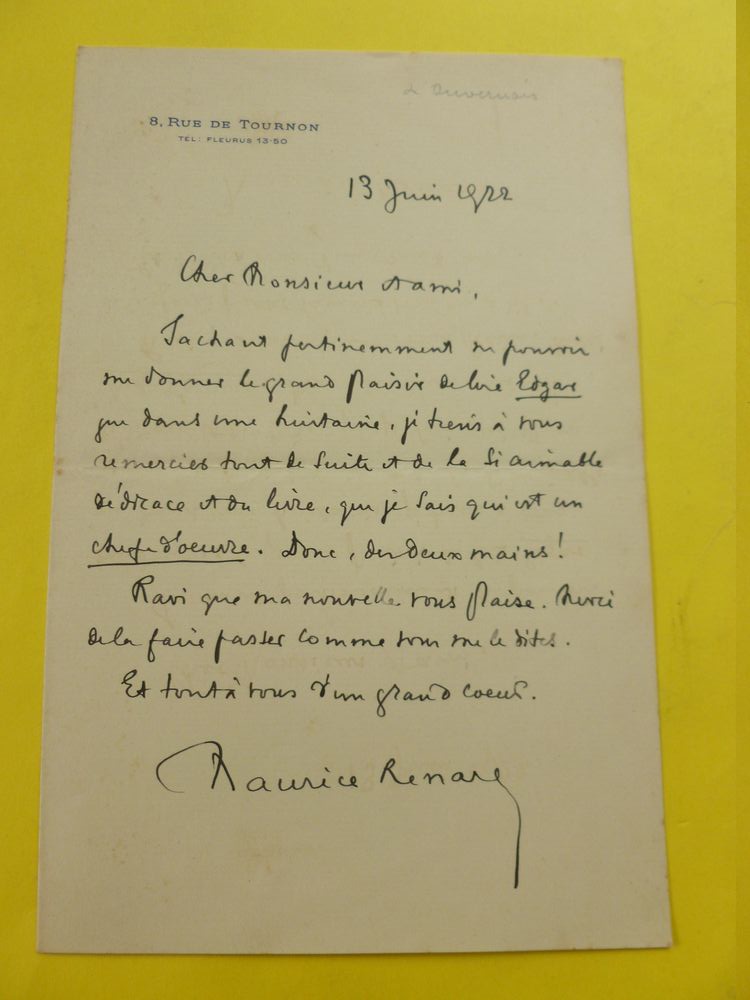 à Duvernois
8, RUE DE TOURNON
TEL: FLEURUS 13-50
13 Juin 1922
Cher Monsieur et ami,
Sachant pertinemment ne pouvoir
me donner le grand plaisir de lire Edgar
que dans une huitaine, je tiens à vous
remercier tout de suite et de la si aimable
dédicace et du livre, que je sais qui est un
chef-d'oeuvre. Donc, des deux mains !
Ravi que ma nouvelle vous plaise. Merci
de la faire passer comme vous me le dites.
Et tout à vous d'un grand coeur.
Maurice Renard